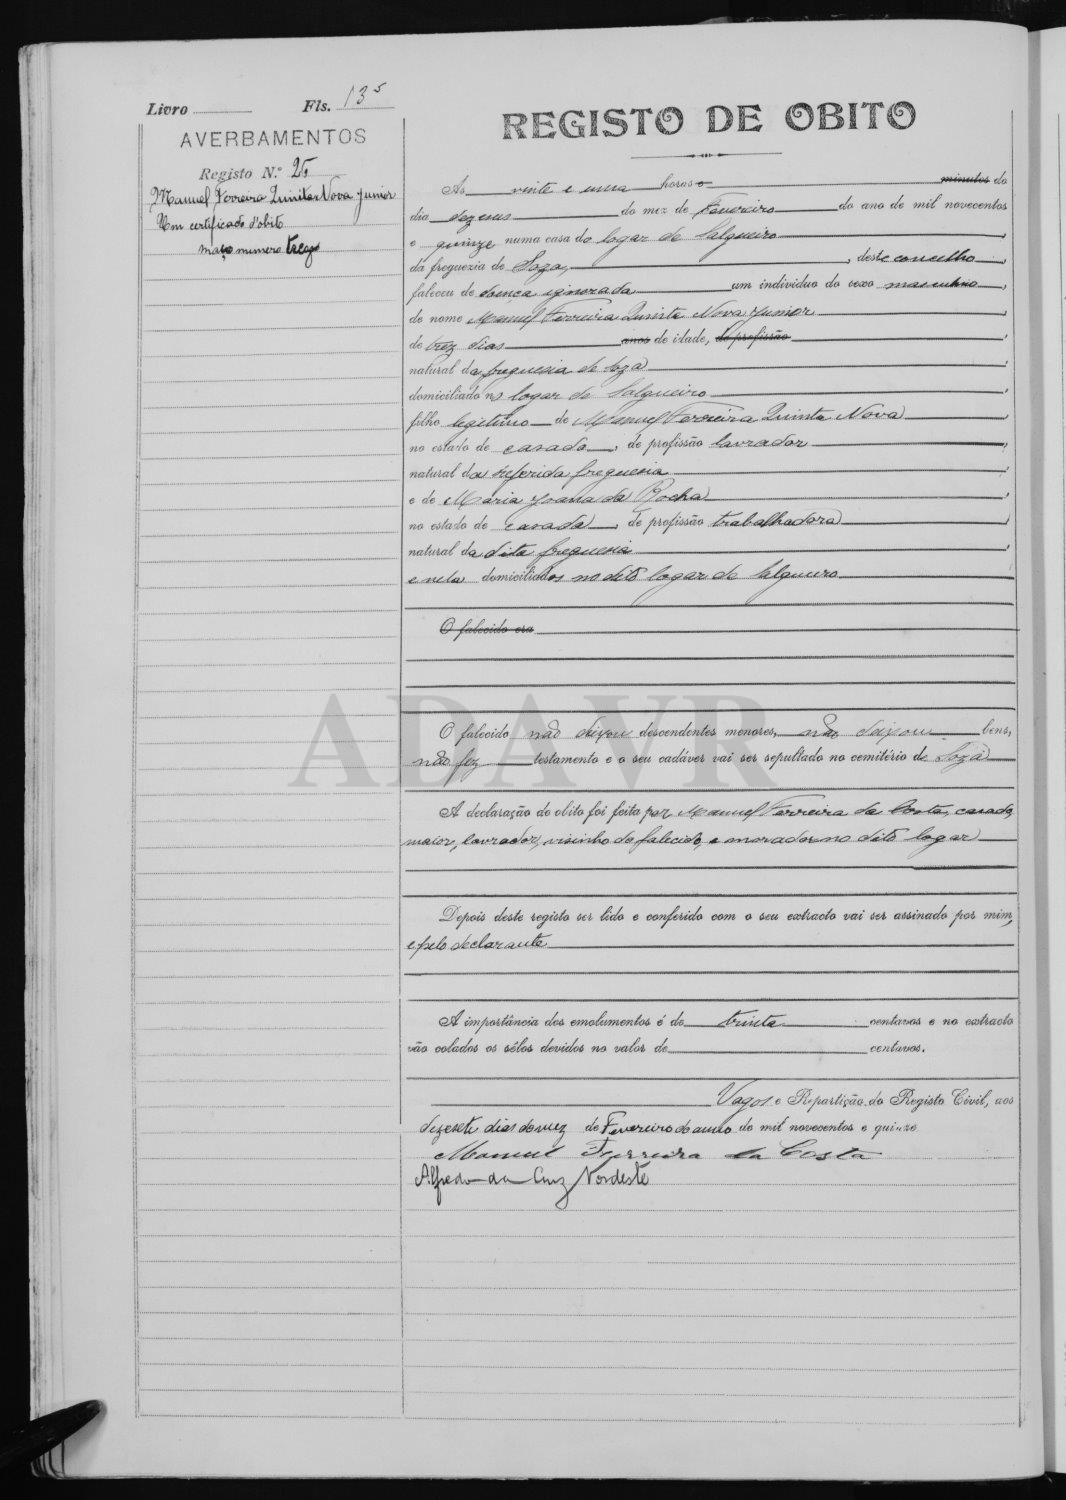 Livro Fls. 135
AVERBAMENTOS
Registo N.º 25
Manuel Ferreira Quinta Nova Junior
Um certificado d'obito
maço numero treze
REGISTO DE OBITO
As vinte e uma horas e minutos do
dia dezeseis do mez de Fevereiro do ano de mil novecentos
e quinze numa casa do logar de Salgueiro
da freguezia de Soza, , deste concelho,
faleceu de doença ignorada um individuo do sexo masculino,
de nome Manuel Ferreira Quinta Nova Junior,
de trez dias anos de idade, de profissão,
natural da freguesia de Soza,
domiciliado no logar de Salgueiro,
filho legitimo de Manuel Ferreira Quinta Nova,
no estado de casado, de profissão lavrador,
natural da referida freguesia,
e de Maria Joana da Rocha,
no estado de casada, de profissão trabalhadora,
natural da dita freguesia,
e nela domiciliados no dito logar de Salgueiro
O falecido era
O falecido não deixou descendentes menores, não deixou bens,
não fez testamento e o seu cadáver vai ser sepultado no cemitério de Soza
A declaração do obito foi feita por Manuel Ferreira da Costa, casado,
maior, lavrador, visinho do falecido, e morador no dito logar
Depois deste registo ser lido e conferido com o seu extracto vai ser assinado por mim,
e pelo declarante
A importância dos emolumentos é de trinta centavos e no extracto
vão colados os sêlos devidos no valor de centavos.
Vagos e Repartição do Registo Civil, aos
dezesete dias do mez de Fevereiro do anno de mil novecentos e quinze
Manuel Ferreira da Costa
Alfredo da Cruz Nordeste
ADAVR